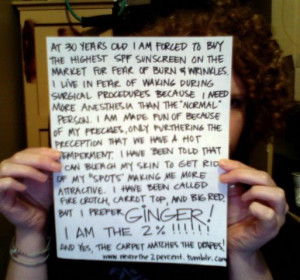 AT 30 YEARS OLD I AM FORCED TO BUY
THE HIGHEST SPF SUNSCREEN ON THE
MARKET FOR FEAR OF BURN & WRINKLES.
I LIVE IN FEAR OF WAKING DURING
SURGICAL PROCEDURES BECAUSE I NEED
MORE ANESTHESIA THAN THE "NORMAL"
PERSON. I AM MADE FUN OF BECAUSE
OF MY FRECKLES, ONLY FURTHERING THE
PRECEPTION THAT WE HAVE A HOT
TEMPERMENT. I HAVE BEEN TOLD THAT
I CAN BLEACH MY SKIN TO GET RID
OF MY "SPOTS" MAKING ME MORE
ATTRACTIVE. I HAVE BEEN CALLED
FIRE CROTCH, CARROT TOP, AND BIG RED,
BUT I PREFER GINGER!
I AM THE 2%!!!!!!
AND YES, THE CARPET MATCHES THE DRAPES!
www.wearethe2percent.tumblr.com